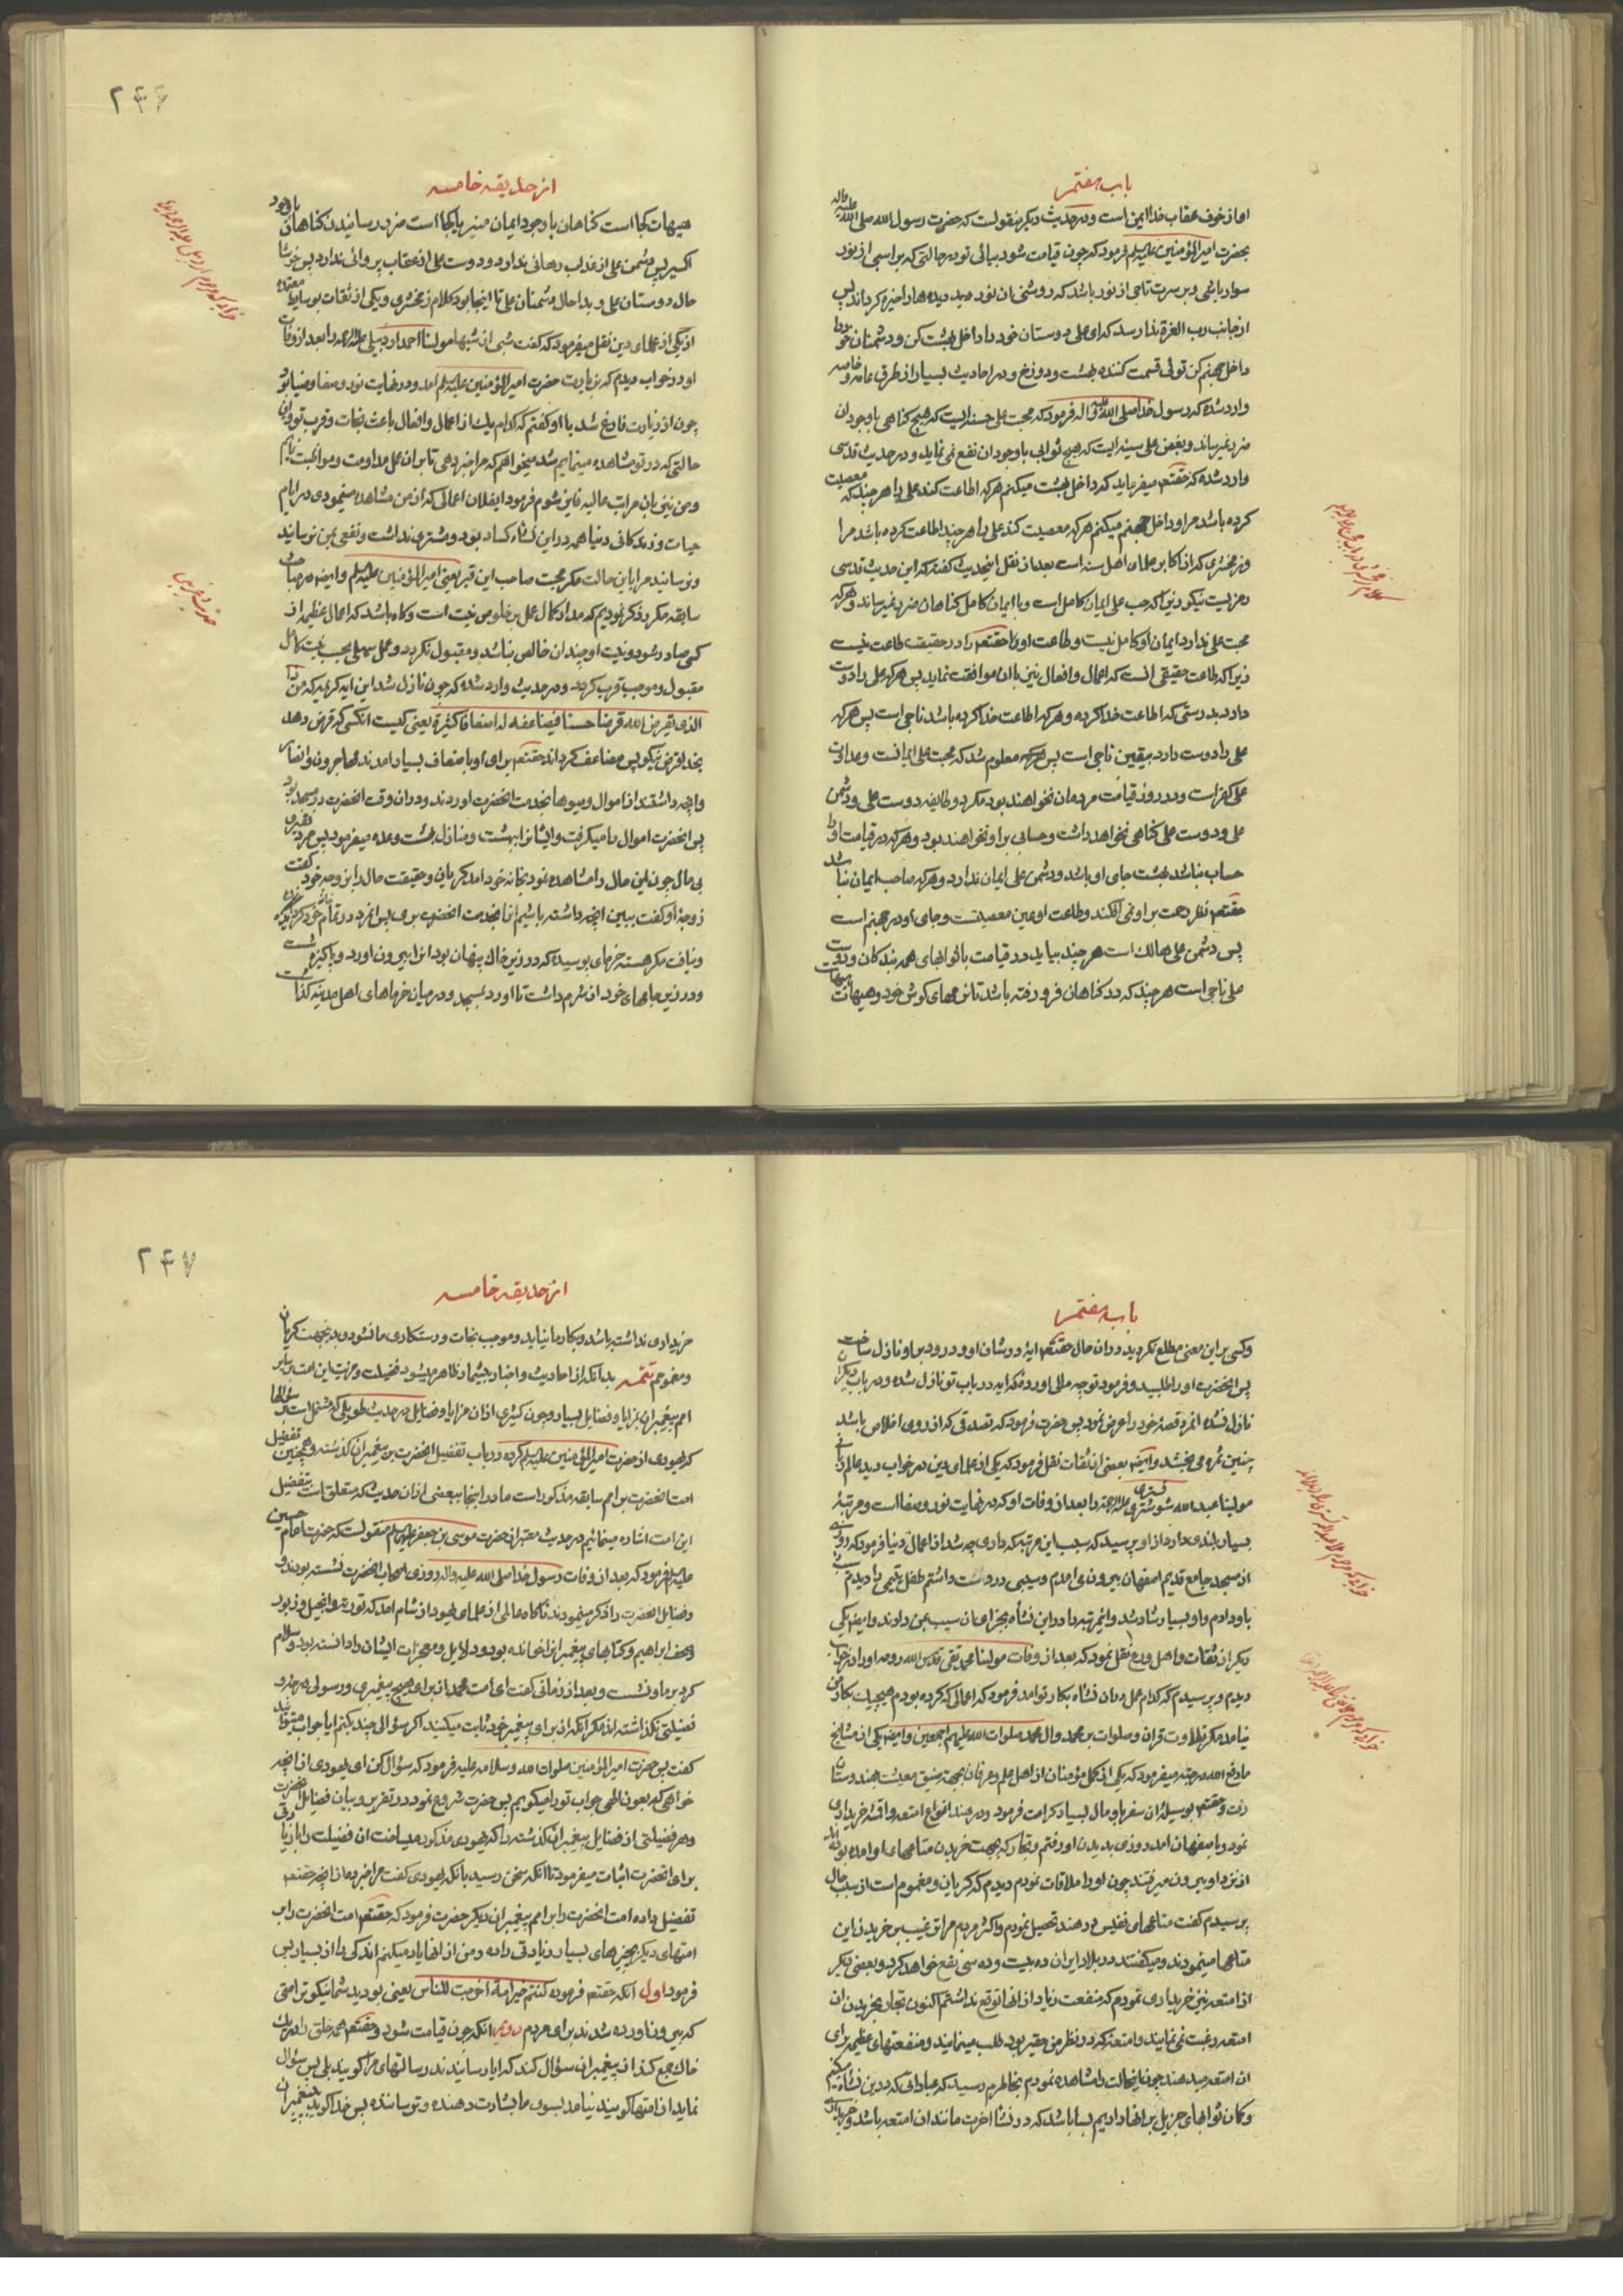 باب هفتم
اما از خوف عقاب خدا ایمن است و در حدیث دیکر منقولست که حضرت رسول الله صلی الله علیه واله
بحضرت امیرالمؤمنین علیه السلم فرمود که چون قیامت شود بیائی تو در حالتی که بر اسبی از نور
سوار باشی و بر سرت تاجی از نور باشد که روشنی ان نور دید دیده ها را خیره کرداند پس
از جانب رب العزة ندا رسد که ای علی دوستان خود را داخل بهشت کن و دشمنان خود را
داخل جهنم کن توئی قسمت کننده بهشت و دوزخ و در احادیث بسیار از طرق عامه و خاصه
وارد شده که رسول خدا صلی الله علیه واله فرمود که محبت علی حسنه ایست که هیچ کناهی با وجود ان
ضرر نمیرساند و بغض علی سیئه ایست که هیچ ثوابی با وجود ان نفع نمی نماید و در حدیث قدسی
وارد شده که حقتعم میفرماید که داخل بهشت میکنم هر که اطاعت کند علی را هر چند که معصیت
کرده باشد مرا و داخل جهنم میکنم هر که معصیت کند علی را هر چند اطاعت کرده باشد مرا
و زمخشری که از اکابر علمای اهل سنه است بعد از نقل اینحدیث کفته که این حدیث قدسی
رمزیست نیکو زیرا که حب علی ایمان کامل است و با ایمان کامل کناهان ضرر نمیرساند و هر که
محبت علی ندارد ایمان او کامل نیست و طاعت او با حقتعم را در حقیقت طاعت نیست
زیرا که طاعت حقیقی انست که اعمال و افعال نیز با ان موافقت نماید پس هر که علی را دوست
دارد بدرستی که اطاعت خدا کرده و هر که اطاعت خدا کرده باشد ناجی است پس هر که
علی را دوست دارد بیقین ناجی است پس معلوم شد که محبت علی ایمانست و عداوت
علی کفر است و در روز قیامت مردمان نخواهند بود مکر دو طایفه دوست علی و دشمن
علی و دوست علی کناهی نخواهد داشت و حسابی بر او نخواهند بود و هر که در قیامت او را
حساب نباشد بهشت جای او باشد و دشمن علی ایمان ندارد و هر که صاحب ایمان نباشد
حقتعم نظر رحمت بر او نمی افکند و طاعت او عین معصیتست و جای او در جهنم است
پس دشمن علی هالک است هر چند بیاید در قیامت با ثوابهای همه بندکان و دوست
علی ناجی است هر چند که در کناهان فرو رفته باشد تا نرمهای کوش خود و هیهات هیهات
کلام زمخشری
از حدیقه خامسه
هیهات کجا است کناهان با وجود ایمان منیر یا کجا است ضرر رسانیدن کناهان با وجود
اکسیر پس دشمن علی از عذاب رهائی ندارد و دوست علی از عقاب پروائی ندارد پس خوشا
حال دوستان علی و بدا حال دشمنان علی تا اینجا بود کلام زمخشری و یکی از ثقات بوسایط معتمده
از یکی از علمای دین نقل میفرمود که کفت شبی از شبها مولینا احمد اردبیلی علیه الرحمه را بعد از وفات
او در خواب دیدم که بزیارت حضرت امیرالمؤمنین علیه السلم امد و در نهایت نور و صفا و ضیا بود
چون از زیارت فارغ شد با او کفتم که کدام یک از اعمال و افعال باعث نجات و قرب تو و این
حالتی که در تو مشاهده مینمایم شد میخواهم که مرا خبر دهی تا بر ان عمل مداومت و مواظبت نمایم
و من نیز بان مراتب عالیه فایز شوم فرمود ایفلان اعمالی که از من مشاهده مینمودی در ایام
حیات و زندکانی دنیا همه در این نشاه کساد بود و مشتری نداشت و نفعی بمن نرسانید
و نرسانید مرا باین حالت مکر محبت صاحب این قبر یعنی امیرالمؤمنین علیه السلم و ایضا در حیات
سابقه مکرر ذکر نمودیم که مدار کمال عمل بر خلوص نیت است و کاه باشد که اعمال عظیمه از
کسی صادر شود و نیت او چندان خالص نباشد و مقبول نکردد و عمل سهلی بحسب نیت کامل
مقبول و موجب قرب کردد و در حدیث وارد شده که چون نازل شد این ایه کریمه که من ذا
الذی یقرض الله قرضا حسنا فیضاعفه له اضعافا کثیرة یعنی کیست انکسی که قرض دهد
بخدا قرض نیکو پس مضاعف کرداند حقتعم برای او باضعاف بسیار امدند مهاجرون و انصار
و انچه داشتند از اموال و میوها بخدمت انحضرت اوردند و در ان وقت انحضرت در مسجد بود
پس انحضرت اموال را میکرفت و ایشان را بهشت و منازل بهشت وعده میفرمود پس مرد فقیری
بی مال چون این حال را مشاهده نمود بخانه خود امد کریان و حقیقت حال را بزوجه خود کفت
زوجه او کفت ببین انچه داشته باشیم انرا بخدمت انحضرت بری پس انمرد در تمام خانه خود کردید
و نیافت مکر هسته خرمای بوسیده که در زیر خاک پنهان بود انرا بیرون اورد و پاکیزه شست
و در زیر جامهای خود از شرم داشت تا اورد بمسجد و در میان خرماهای اهل مدینه کذاشت
خوابی که مرحوم اردبیلی علیه الرحمه دیده
حدیث غریبی
۲۴۶
باب هفتم
و کسی بر این معنی مطلع نکردید در ان حال حقتعم ایه در شان او و در ورود بر او نازل ساخت
پس انحضرت او را طلبید و فرمود تو چه مالی اورده که ایه در باب تو نازل شده و در باب دیکران
نازل نشده انمرد قصه خود را عرض نمود پس حضرت فرمود که تصدقی که از روی اخلاص باشد
چنین ثمره می بخشد و ایضا بعضی از ثقات نقل فرمود که یکی از علمای دین در خواب دید عالم ربانی
مولینا عبدالله شوشتری علیه الرحمه را بعد از وفات او که در نهایت نور و صفا است و مرتبه
بسیار بلندی دارد از او پرسید که سبب این مرتبه که داری چه شد از اعمال دنیا فرمود که روزی
از مسجد جامع قدیم اصفهان بیرون می امدم و سیبی در دست داشتم طفل یتیمی را دیدم سیب را
باو دادم و او بسیار شاد شد و انمرتبه را در این نشأه بجزای ان سیب بمن دادند و ایضا یکی
دیکر از ثقات و اهل ورع نقل نمود که بعد از وفات مولینا محمد تقی قدس الله روحه او را در خواب
دیدم و پرسیدم که کدام عمل در ان نشاه بکار تو امد فرمود که اعمالی که کرده بودم هیچیک بکار من
نیامد مکر تلاوت قران و صلوات بر محمد و ال محمد صلوات الله علیهم اجمعین و ایضا یکی از مشایخ
ما رفع الله درجته میفرمود که یکی از کمل مؤمنان از اهل علم و عرفان بجهة ضیق معیشت بهندوستان
رفت و حقتعم بوسیله ان سفر باو مال بسیار کرامت فرمود و در هند انواع امتعه و اقشه خریداری
نمود و باصفهان امد روزی بدیدن او رفتم و تجار که بجهت خریدن متاعهای او امده بودند
از نزد او بیرون میرفتند چون او را ملاقات نمودم دیدم که کریان و مغموم است از سبب حال
پرسیدم کفت متاعهای نفیس در هند تحصیل نمودم و اکثر مردم مرا ترغیب بر خریدن این
متاعها مینمودند و میکفتند در بلاد ایران ده بیست و ده سی نفع خواهد کرد و بعضی دیکر
از امتعه نیز خریداری نمودم که منفعت زیاد از انها توقع نداشتم اکنون تجار بخریدن ان
امتعه رغبت نمی نمایند و امتعه که در نظر من حقیر بود طلب مینمایند و منفعتهای عظیم برای
ان امتعه میدهند چون اینحالت را مشاهده نمودم بخاطرم رسید که عباداتی که در این نشاه میکنیم
و کمان ثوابهای جزیل بر انها داریم بسا باشد که در نشاه اخرت مانند ان امتعه باشد و خریداری
از حدیقه خامسه
خریداری نداشته باشد و بکار ما نیاید و موجب نجات و رستکاری ما نشود بدینجهت کریان
و مغمومم تتمه بدانکه از احادیث و اخبار بیشمار ظاهر میشود فضیلت و مزیت این امت بر سایر
امم پیغمبران بمزایا و فضایل بسیار و چون کثیری از ان مزایا و فضایل در حدیث طویلی که مشتمل است بر سؤالها
که یهودی از حضرت امیرالمؤمنین علیه السلم کرده در باب تفضیل انحضرت بر پیغمبران کذشته و همچنین تفضیل
امت انحضرت بر امم سابقه مذکور است ما در اینجا ببعضی از ان حدیث که متعلق است بتفضیل
این امت اشاره مینمائیم در حدیث معتبر از حضرت موسی بن جعفر علیه السلم منقولست که حضرت امام حسین
علیه السلم فرمود که بعد از وفات رسول خدا صلی الله علیه واله روزی اصحاب انحضرت نشسته بودند و
فضایل انحضرت را ذکر مینمودند ناکاه عالمی از علمای یهود از شام امد که توریة و انجیل و زبور
و صحف ابراهیم و کتابهای پیغمبرانرا خوانده بود و دلایل و معجزات ایشان را دانسته بود و سلام
کرد بر ما و نشست و بعد از زمانی کفت ای امت محمد از برای هیچ پیغمبری و رسولی درجه و
فضیلتی نکذاشته اید مکر انکه از برای پیغمبر خود ثابت میکنید اکر سؤالی چند بکنم ایا جواب میتوانید
کفت پس حضرت امیرالمؤمنین صلوات الله و سلامه علیه فرمود که سؤال کن ای یهودی از انچه
خواهی که بعون الهی جواب تو را میکویم پس حضرت شروع نمود در تقریر و بیان فضایل انحضرت
و هر فضیلتی از فضایل پیغمبران کذشته را که یهودی مذکور میساخت ان فضیلت را با زیادتی
برای انحضرت اثبات میفرمود تا انکه سخن رسید بانکه یهودی کفت مرا خبر ده از انچه حقتعم
تفضیل داده امت انحضرت را بر امم پیغمبران دیکر حضرت فرمود که حقتعم امت انحضرت را بر
امتهای دیکر بچیزهای بسیار زیادتی داده و من از انها یاد میکنم اندکی را از بسیار پس
فرمود اول انکه حقتعم فرموده کنتم خیر امة اخرجت للناس یعنی بودید شما نیکوتر امتی
که بیرون اورده شدند برای مردم دویم انکه چون قیامت شود و حقتعم همه خلق را در یک
خاک جمع کند از پیغمبران سؤال کند که ایا رسانیدند رسالتهای مرا کویند بلی پس سؤال
نماید از امتها کویند نیامد بسوی ما بشارت دهنده و ترساننده پس خدا کوید به پیغمبران
۲۴۷